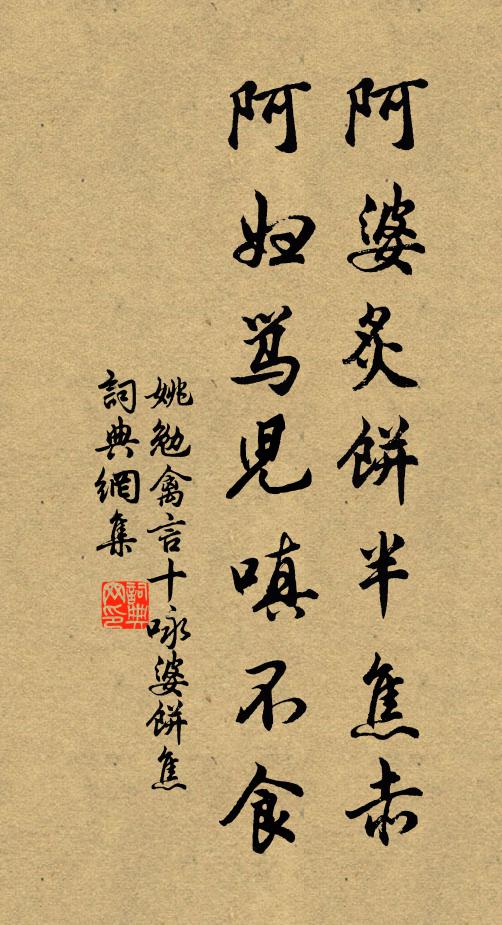 阿婆炙餅半焦赤
阿妇骂児嗔不食
姚勉禽言十咏婆餅焦
詞典網集
詞典
网印